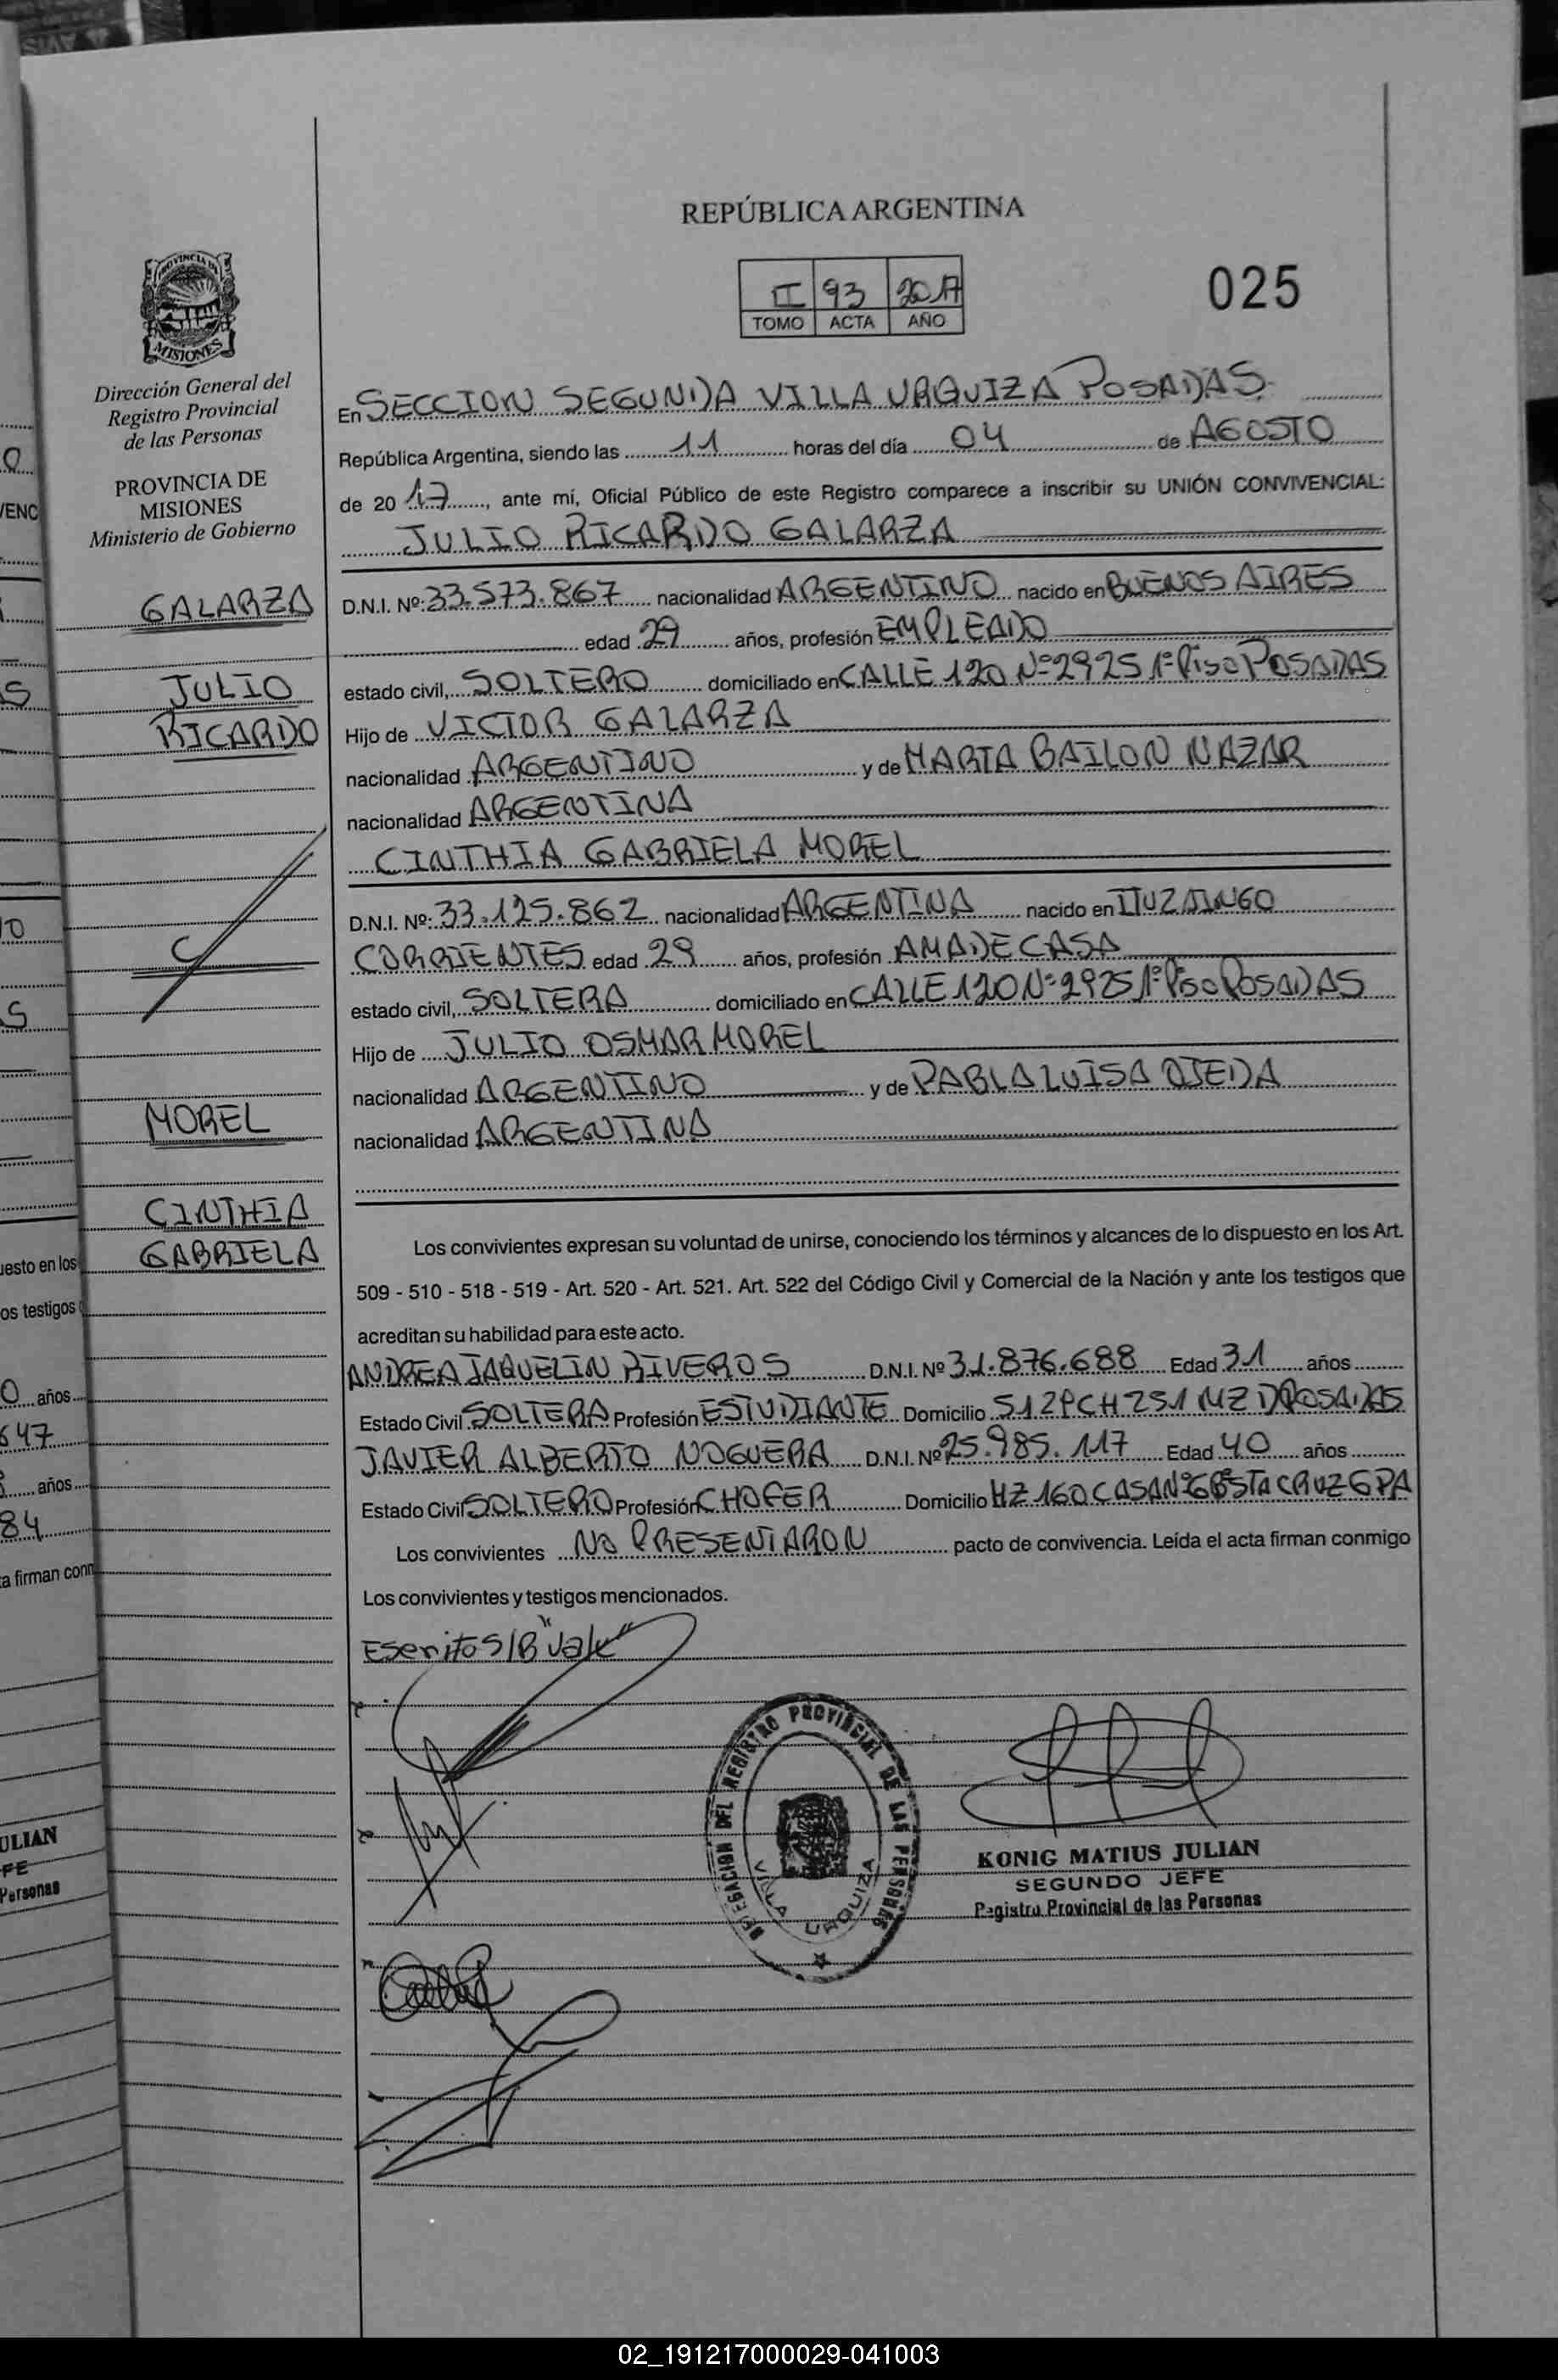 REPÚBLICA ARGENTINA
II 93 2017
TOMO ACTA AÑO
025
PROVINCIA DE
MISIONES
Dirección General del
Registro Provincial
de las Personas
PROVINCIA DE
MISIONES
Ministerio de Gobierno
GALARZA
JULIO
RICARDO
C
MOREL
CINTHIA
GABRIELA
En SECCION SEGUNDA VILLA URQUIZA POSADAS
República Argentina, siendo las 11 horas del día 04 de AGOSTO
de 2017, ante mí, Oficial Público de este Registro comparece a inscribir su UNIÓN CONVIVENCIAL:
JULIO RICARDO GALARZA
D.N.I. Nº: 33.573.867 nacionalidad ARGENTINO nacido en BUENOS AIRES
edad 29 años, profesión EMPLEADO
estado civil, SOLTERO domiciliado en CALLE 120 Nº 2925 1º Piso POSADAS
Hijo de VICTOR GALARZA
nacionalidad ARGENTINO y de MARIA BAILON NAZAR
nacionalidad ARGENTINA
CINTHIA GABRIELA MOREL
D.N.I. Nº: 33.125.862 nacionalidad ARGENTINA nacido en ITUZAINGO
CORRIENTES edad 29 años, profesión AMA DE CASA
estado civil, SOLTERA domiciliado en CALLE 120 Nº 2925 1º Piso POSADAS
Hijo de JULIO OSMAR MOREL
nacionalidad ARGENTINO y de PABLA LUISA OJEDA
nacionalidad ARGENTINA
Los convivientes expresan su voluntad de unirse, conociendo los términos y alcances de lo dispuesto en los Art.
509 - 510 - 518 - 519 - Art. 520 - Art. 521. Art. 522 del Código Civil y Comercial de la Nación y ante los testigos que
acreditan su habilidad para este acto.
ANDREA JAQUELIN RIVEROS D.N.I. Nº 31.876.688 Edad 31 años
Estado Civil SOLTERA Profesión ESTUDIANTE Domicilio S12PCH 251 MZ D POSADAS
JAVIER ALBERTO NOGUERA D.N.I. Nº 25.985.117 Edad 40 años
Estado Civil SOLTERO Profesión CHOFER Domicilio MZ 160 CASA Nº STA CRUZ GPA
Los convivientes NO PRESENTARON pacto de convivencia. Leída el acta firman conmigo
Los convivientes y testigos mencionados.
Escrito S/B "Vale"
DELEGACION DEL REGISTRO PROVINCIAL DE LAS PERSONAS
VILLA URQUIZA
KONIG MATIUS JULIAN
SEGUNDO JEFE
Registro Provincial de las Personas
VENC
uesto en los
os testigos
0 años
647
años
84
a firman conm
ULIAN
FE
Personas
02_191217000029-041003